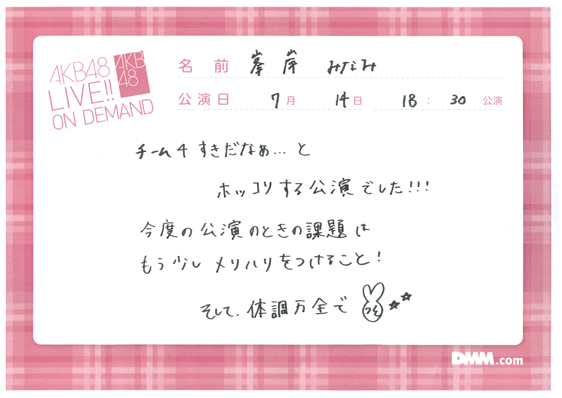 AKB48
LIVE!!
ON DEMAND
AKB
48
名 前 峯岸 みなみ
公演日 7月 14日 18:30 公演
チーム4 すきだなぁ...と
ホッコリする公演でした!!!
今度の公演のときの課題は
もう少しメリハリをつけること!
そして、体調万全で
DMM.com